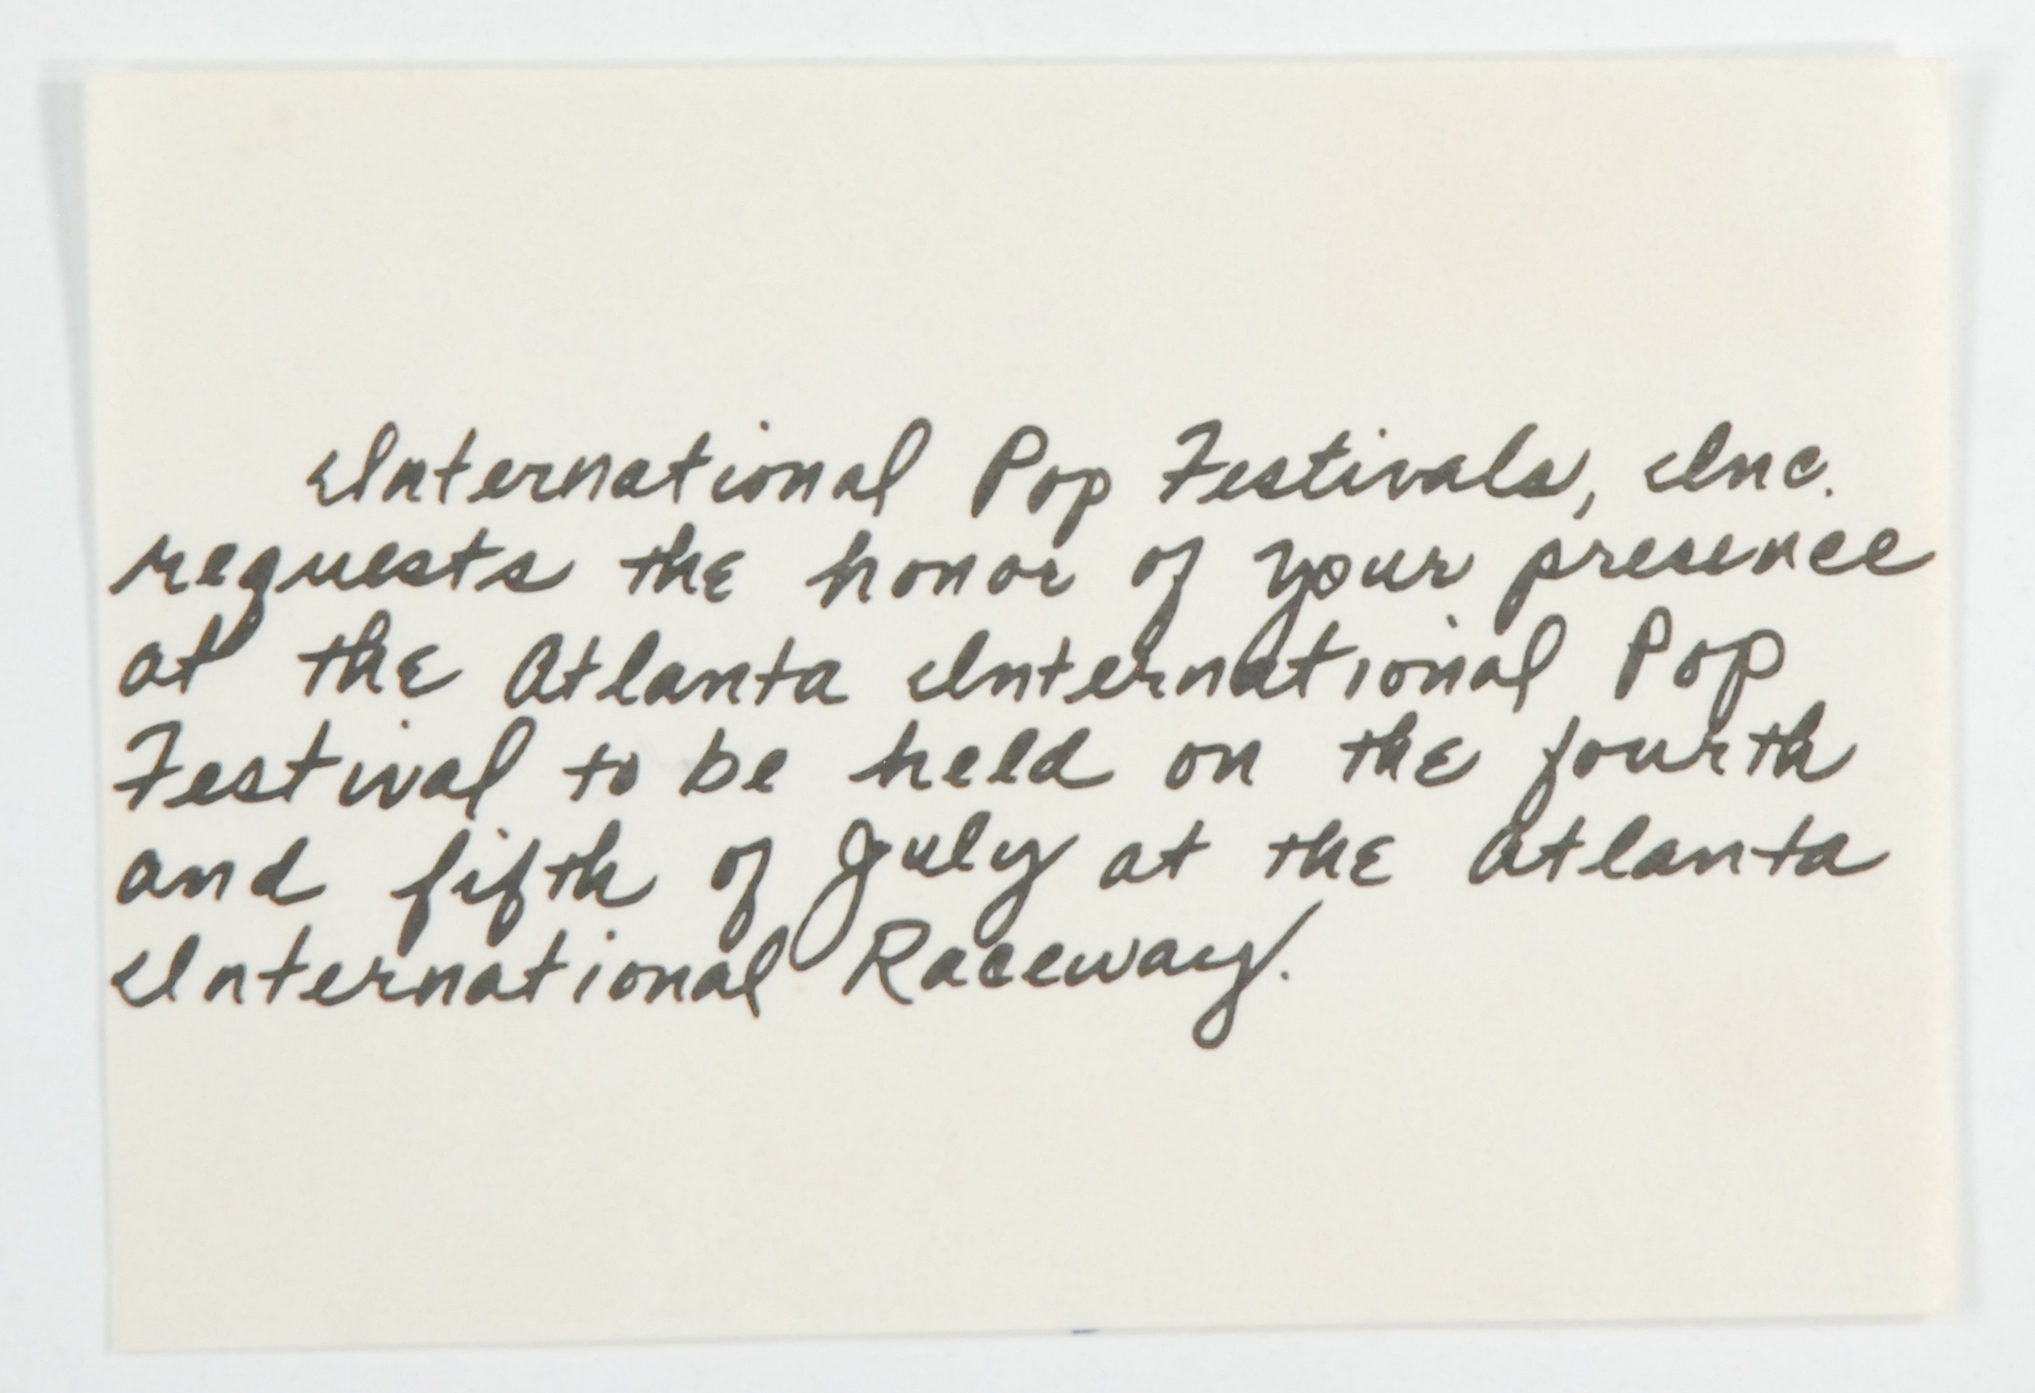 International Pop Festivals, Inc.
requests the honor of your presence
at the Atlanta International Pop
Festival to be held on the fourth
and fifth of July at the Atlanta
International Raceway.